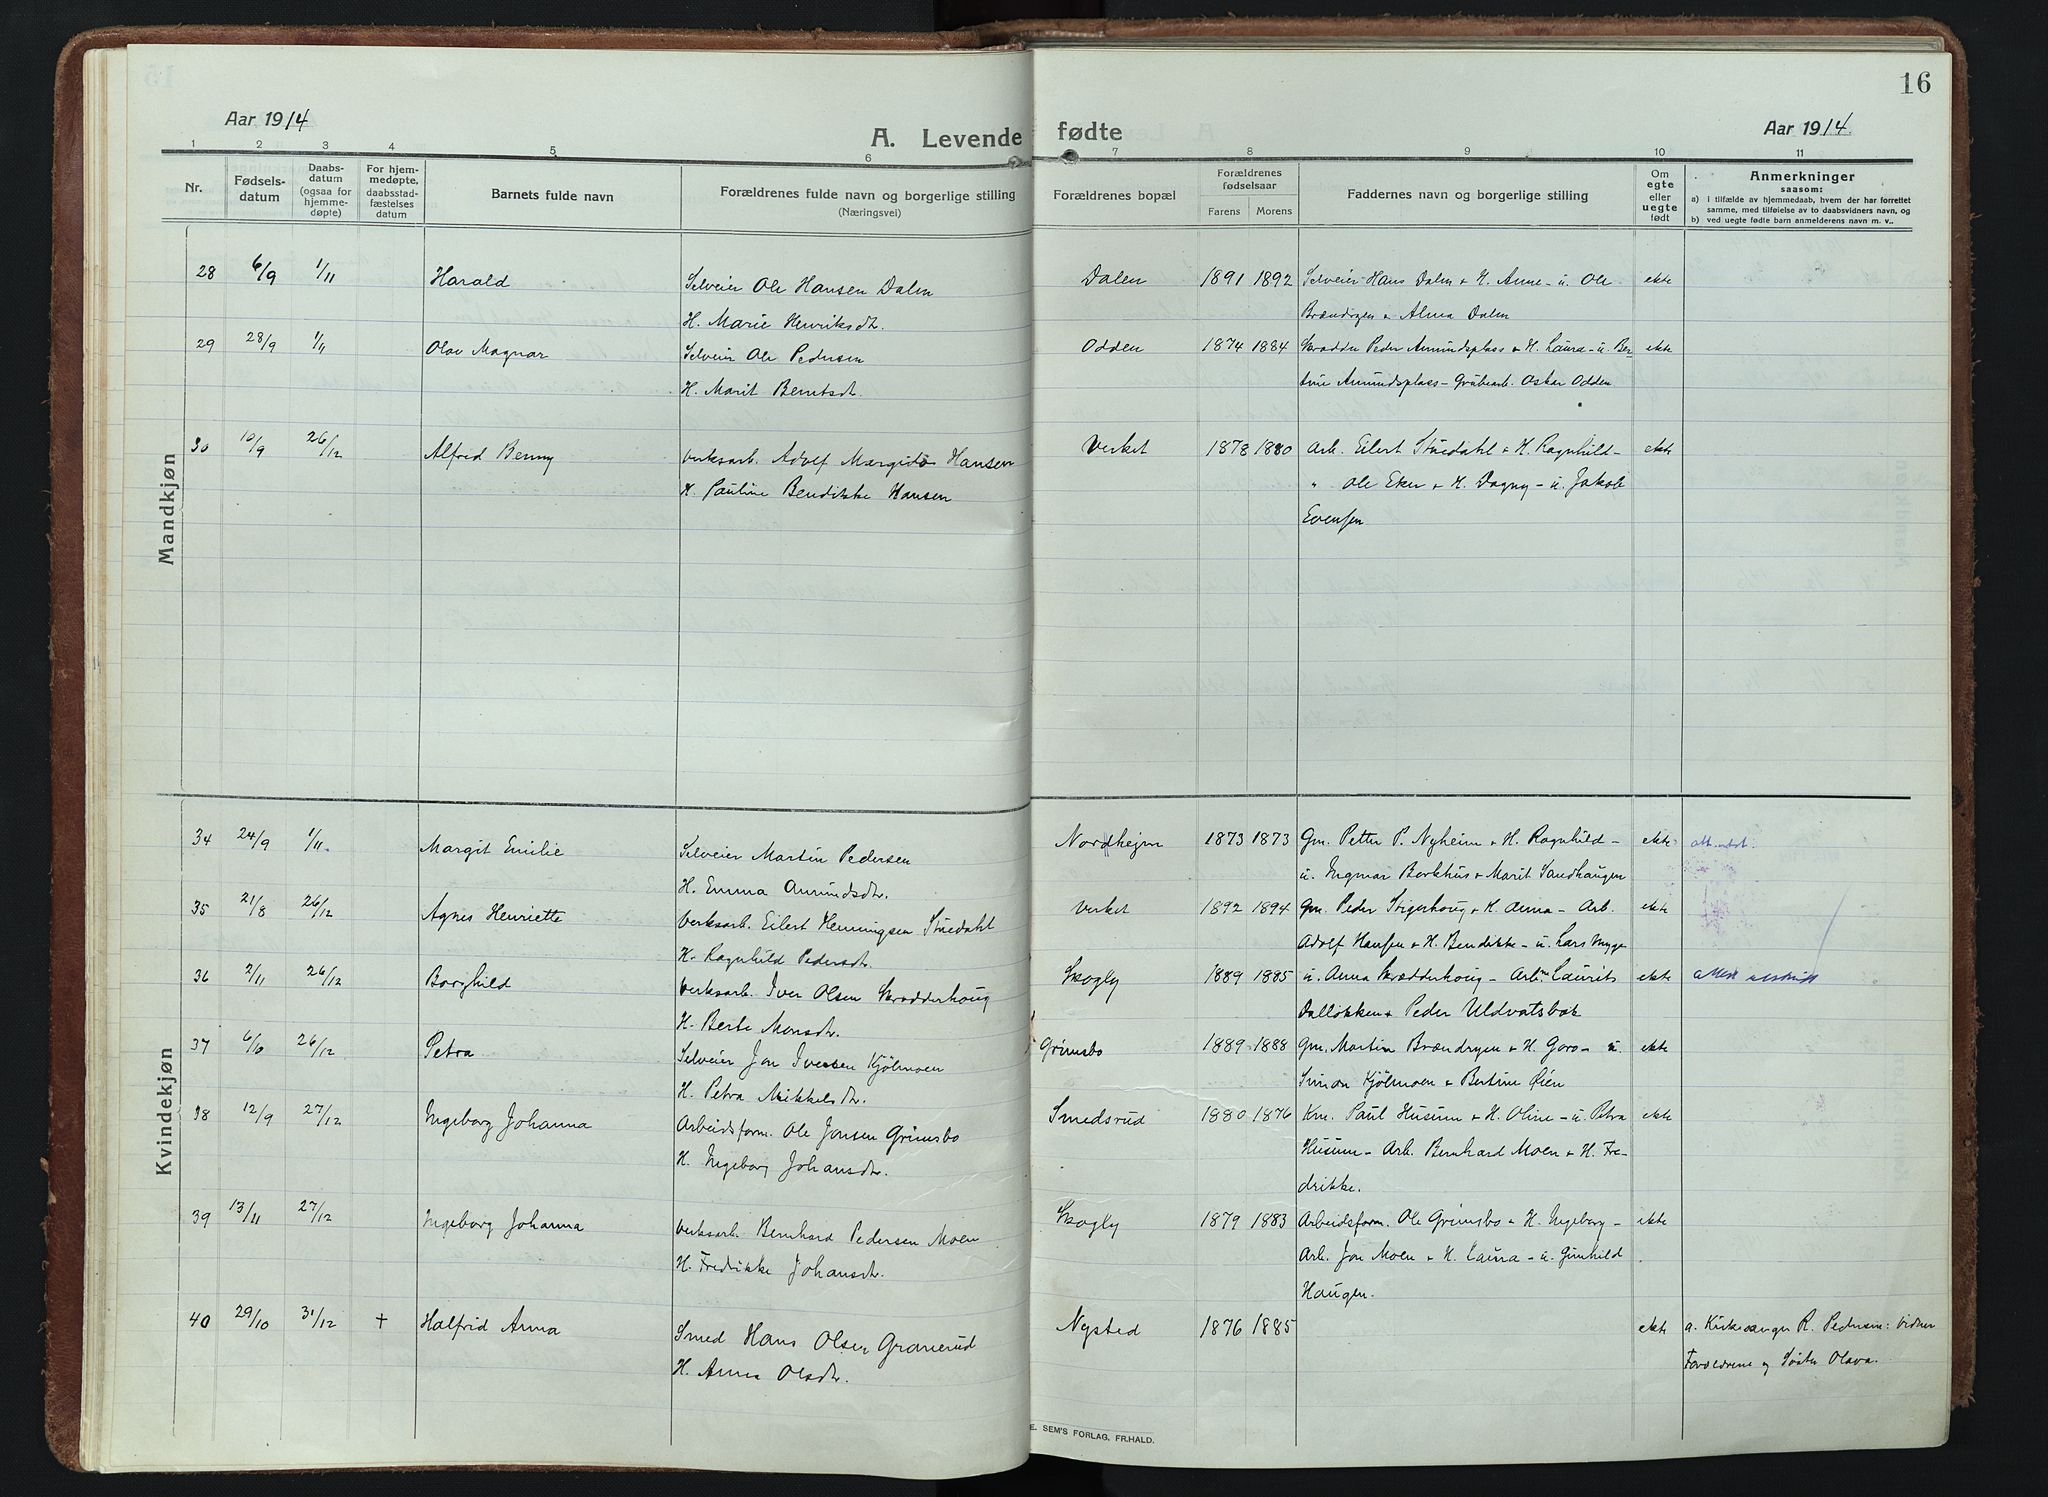 16
Aar 1914
A. Levende fødte
Aar 1914.
1 2 3 4 5 6 7 8 9 10 11
Nr.
Fødsels-
datum
Daabs-
datum
(ogsaa for
hjemme-
døpte)
For hjem-
medøpte,
daabsstad-
fæstelses
datum
Barnets fulde navn
Forældrenes fulde navn og borgerlige stilling
(Næringsvei)
Forældrenes bopæl
Forældrenes
fødselsaar
Farens Morens
Faddernes navn og borgerlige stilling
Om
egte
eller
uegte
født
Anmerkninger
saasom:
a) i tilfælde av hjemmedaab, hvem der har forrettet
samme, med tilføielse av to daabsvidners navn, og
b) ved uegte fødte barn anmelderens navn m. v..
Mandkjøn
28 6/9 1/11 Harald Selveier Ole Hansen Dalen Dalen 1891 1892 Selveier Hans Dalen & H. Anne - u. Ole ekte
H. Marie Henriksdr. Brændryen & Alma Dalen
29 28/9 1/11 Olav Magnar Selveier Ole Pedersen Odden 1874 1884 Skrædder Peder Amundsplass & H. Laura - u. Ber- ekte
H. Marit Berntsdr. tine Amundsplass - Grubearb. Oskar Odden
30 10/9 26/12 Alfred Benny Verksarb. Adolf Margido Hansen Verket 1878 1880 Arb. Eilert Stuedahl & H. Ragnhild - ekte
H. Pauline Bendikke Hansen " Ole Eker & H. Dagny - u. Jakob
Evensen
Kvindekjøn
34 24/9 1/11. Margit Emilie Selveier Martin Pedersen Nordheim 1873 1873 Gm. Petter P. Nyheim & H. Ragnhild - ekte
H. Emma Amundsdr. u. Ingmar Borkhus & Marit Sandhaugen
35 21/8 26/12 Agnes Henriette Verksarb. Eilert Henningsen Stuedahl Verket 1892 1894 Gm. Peder Stigerhoug & H. Anna - Arb. ekte
H. Ragnhild Pedersdr. Adolf Hansen & H. Bendikke - u. Lars Myge
36 2/11 26/12 Borghild Verksarb. Iver Olsen Skrædderhoug Skogly 1889 1885 u. Anna Skrædderhoug - Arbm. Laurits ekte
H. Berte Monsdr. Dalløkken & Peder Uldvatsbak
37 6/10 26/12 Petra Selveier Jon Iversen Kjølmoen Grimsbo 1889 1888 Gm. Martin Brændryen & H. Goro - u. ekte
H. Petra Mikkelsdr. Simon Kjølmoen & Bertine Øien
38 12/9 27/12 Ingeborg Johanna Arbeidsform. Ole Jonsen Grimsbo Smedsrud 1880 1876 Km. Paul Husum & H. Oline - u. Petra ekte
H. Ingeborg Johansdr. Husum - Arb. Bernhard Moen & H. Fre-
drikke.
39 13/11 27/12 Ingeborg Johanna Verksarb. Bernhard Pedersen Moen Skogly 1879 1883 Arbeidsform. Ole Grimsbo & H. Ingeborg - ekte
H. Fredrikke Johansdr. Arb. Jon Moen & H. Laura - u. Gunhild
Haugen.
40 29/10 31/12 + Halfrid Anna Smed Hans Olsen Granerud Nysted 1876 1885 ekte a. Kirkesanger R. Pedersen: Vidner
H. Anna Olsdr. Forældrene og Søster Olava.
E. SEM'S FORLAG, FR.HALD.